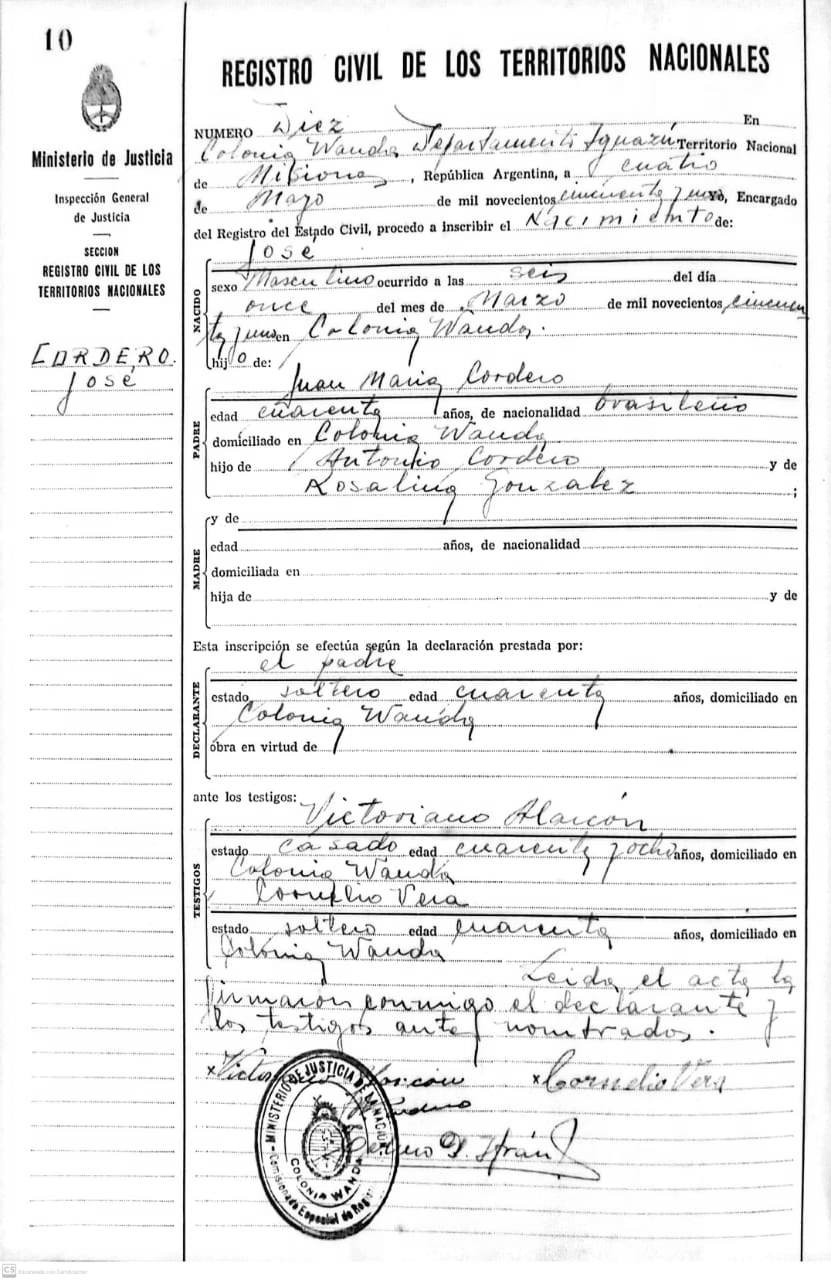 10
REGISTRO CIVIL DE LOS TERRITORIOS NACIONALES
Ministerio de Justicia
Inspección General
de Justicia
SECCION
REGISTRO CIVIL DE LOS
TERRITORIOS NACIONALES
CORDERO.
José
NUMERO Diez En
Colonia Wanda Departamento Iguazú Territorio Nacional
de Misiones, República Argentina, a cuatro
de Mayo de mil novecientos cincuenta y uno Yo, Encargado
del Registro del Estado Civil, procedo a inscribir el Nacimiento de:
José
NACIDO
sexo Masculino ocurrido a las seis del día
once del mes de Marzo de mil novecientos cincuen
ta y uno en Colonia Wanda.
hijo de:
Juan Maria Cordero
PADRE
edad cuarenta años, de nacionalidad brasileño
domiciliado en Colonia Wanda
hijo de Antonio Cordero y de
Rosalina Gonzalez ;
MADRE
y de
edad años, de nacionalidad
domiciliada en
hija de y de
Esta inscripción se efectúa según la declaración prestada por:
el padre
DECLARANTE
estado soltero edad cuarenta años, domiciliado en
Colonia Wanda
obra en virtud de
ante los testigos:
Victoriano Alarcón
TESTIGOS
estado casado edad cuarenta y ocho años, domiciliado en
Colonia Wanda
Cornelio Vera
estado soltero edad cuarenta años, domiciliado en
Colonia Wanda
Leida el acta la
firmaron conmigo el declarante y
los testigos ante nombrados.
x Victoriano Alarcón x Cornelio Vera
Cordero
MINISTERIO DE JUSTICIA DE LA NACION
COLONIA WANDA
Comisionado Especial de Registro
CS Escaneado con CamScanner